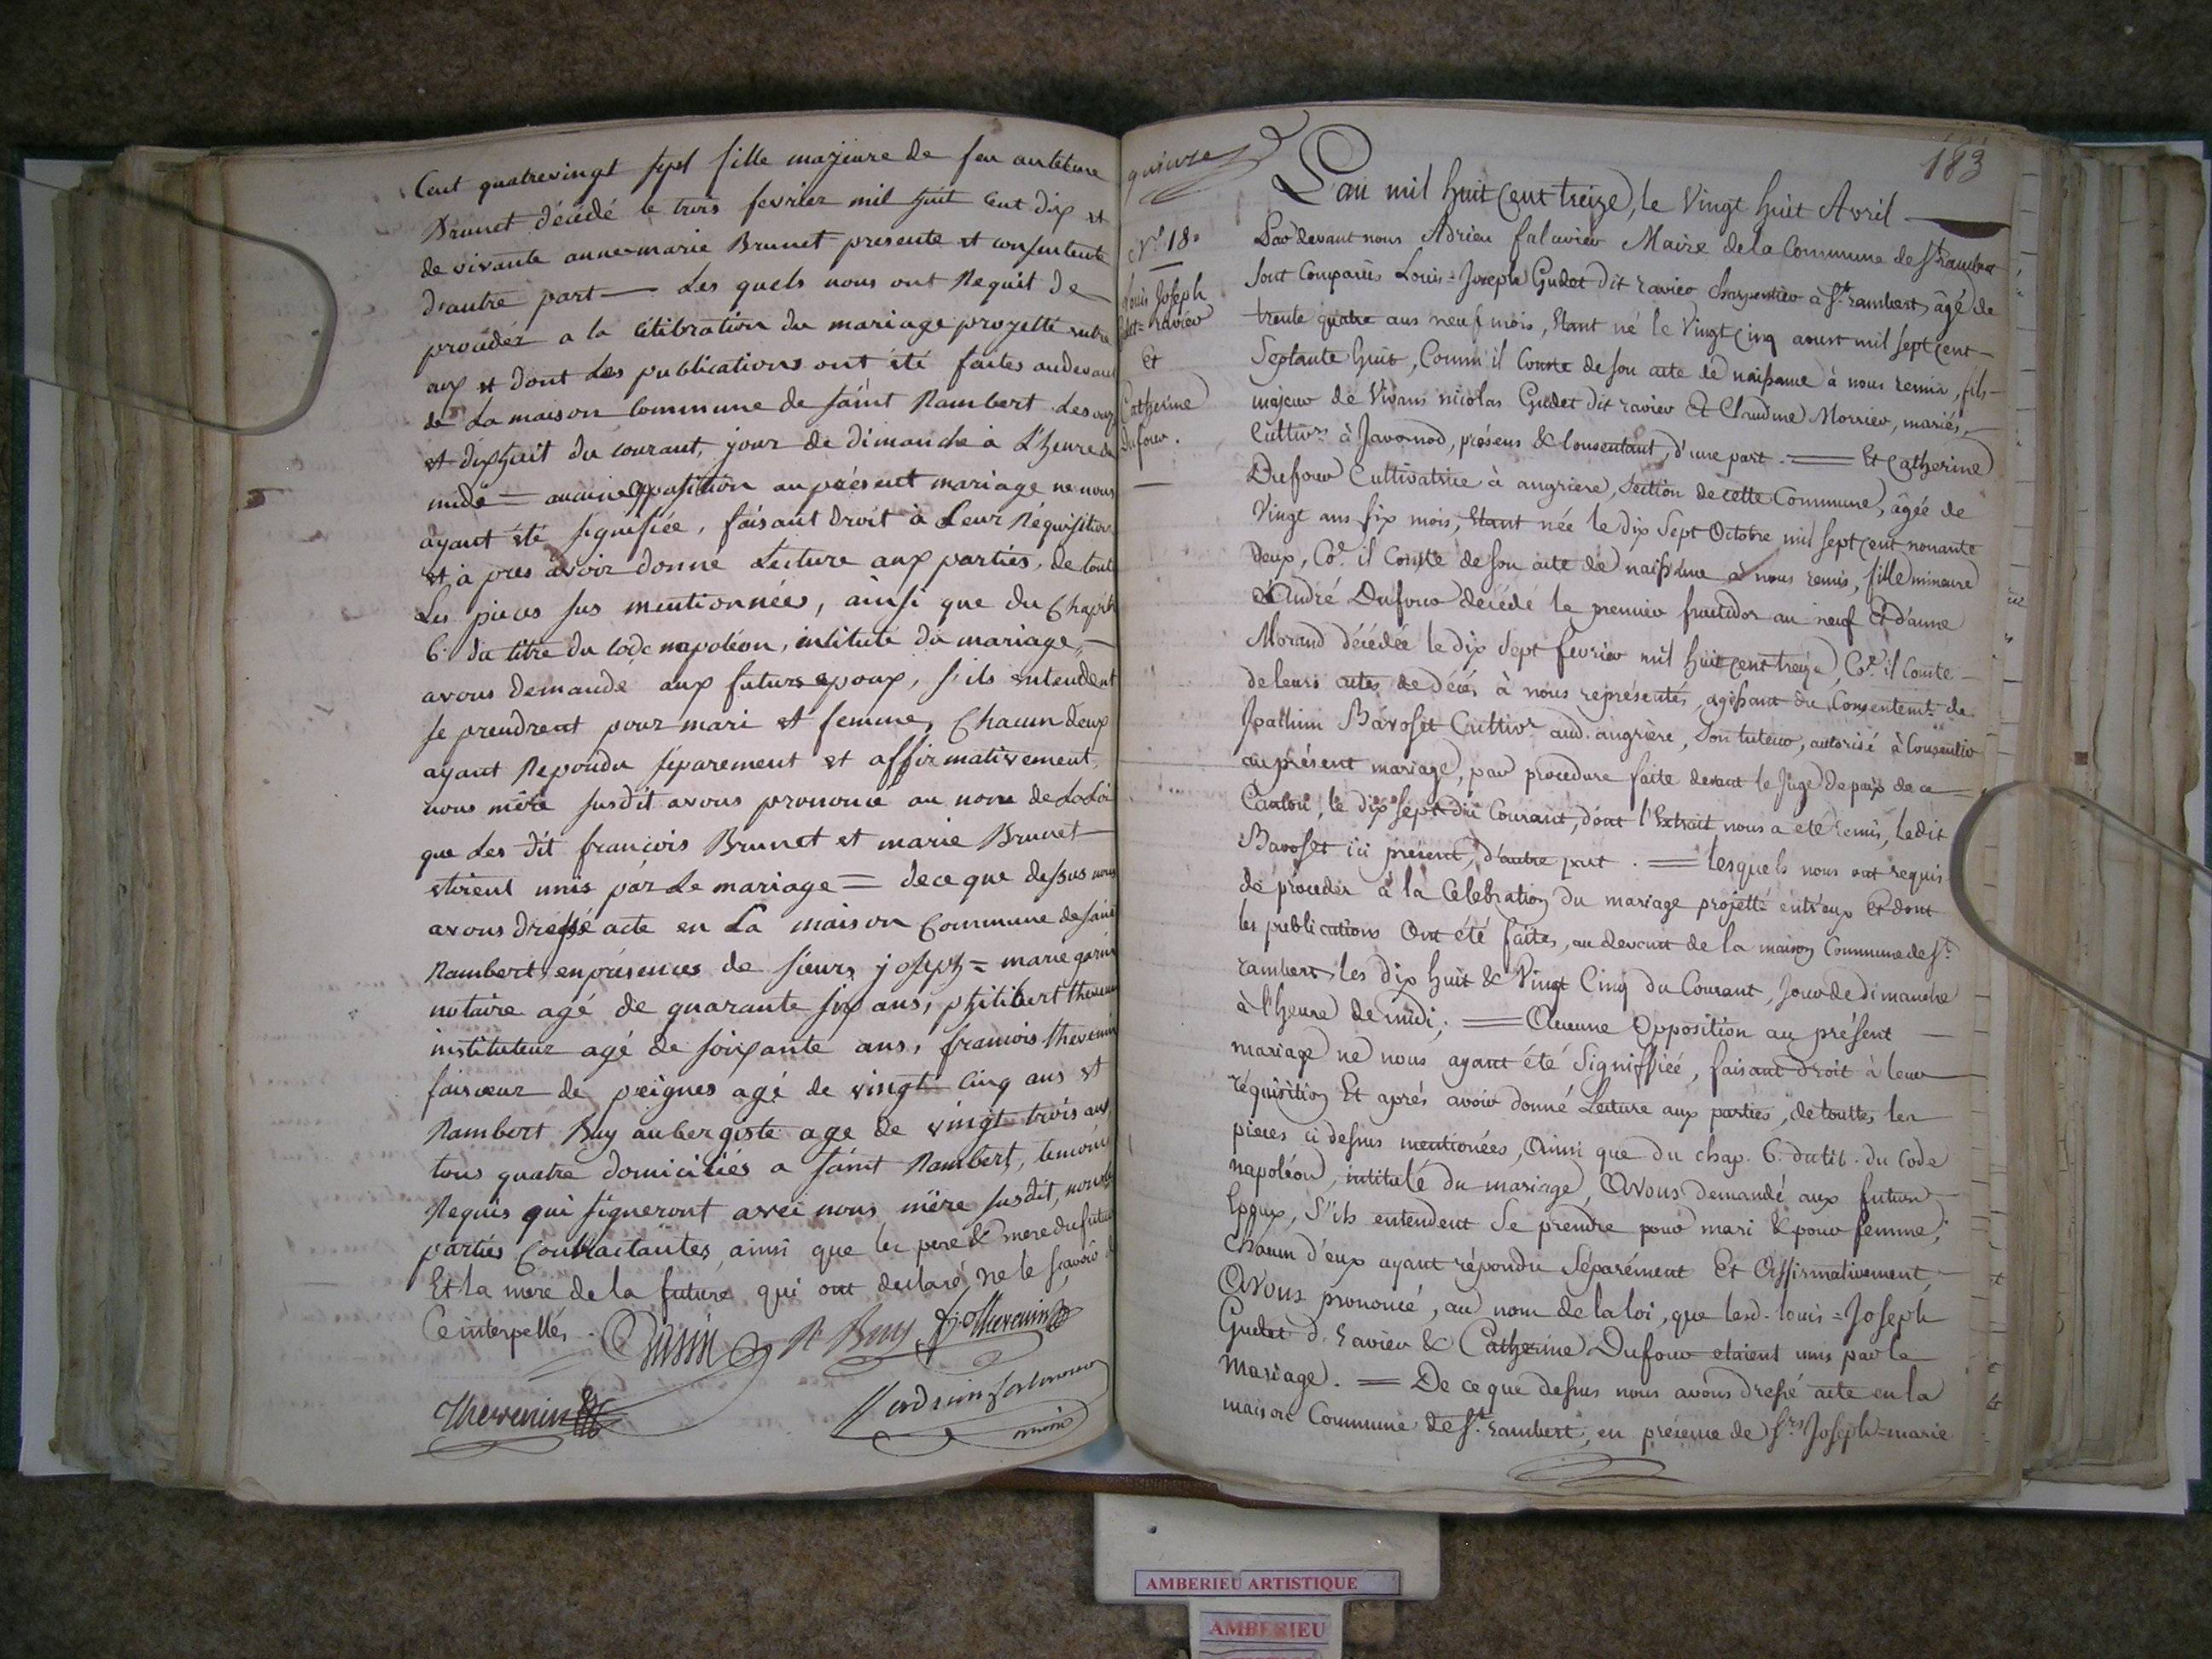 Cent quatrevingt sept fille majeure de feu antelme
Brunet décédé le trois fevrier mil huit cent dix et
de vivante anne-marie Brunet presente et consentente
d'autre part — Les quels nous ont Requit de
procéder a la célébration du mariage projetté entre
eux et dont Les publications ont été faites audevant
de La maison Commune de saint Rambert Les onze
et dixhuit du courant, jour de dimanche à L'heure de
midi = aucune opposition au présent mariage ne nous
ayant été signifiée, faisant droit à Leur Réquisition
et, à pres avoir donné Lecture aux parties, de toute
Les pieces sus mentionnées, àinsi que du Chapitr
6. du titre du code napoléon, intitulé du mariage, —
avons demandé aux futurs epoux, s'ils entendent
se prendreat pour mari et femme, Chacun deux
ayant Repondu séparement et affirmativement,
nous mère susdit avons prononcé au nom de La Loi
que Les dit francois Brunet et marie Brunet —
etoient unis par Le mariage = de ce que dessus nous
avons dressé acte en La maison Commune de sain
Rambert, en présences de sieurs joseph = marie garin
notaire agé de quarante six ans, philibert thevenin
instituteur agé de soixante ans, francois thevenin
faiseur de peignes agé de vingt cinq ans et
Rambert Buy aubergiste age de vingt trois ans,
tous quatre domiciliés a saint Rambert, temoins
Requis qui signeront avec nous mère susdit, non les
parties Contractantes, ainsi que les pere & mere du futur
Et la mere de la future qui ont declaré, ne le scavoir d
Ce interpellés. Garin R Buy f. Thevenin
Thevenin
183
quinze
N.º 18.
Louis Joseph
Gudet = ravier
Et
Catherine
Dufour.
L'an mil huit Cent treize, le Vingt huit Avril —
Par devant nous Adrien falavier Maire de la Commune de St. Rambert
sont Comparus Louis = Joseph Gudet dit ravier charpentier à St. rambert, âgé de
trente quatre ans neuf mois, Etant né le Vingt Cinq aoust mil sept Cent —
Septante huit, Comm'il Conste de son acte de naissance à nous remis, fils —
majeur de Vivans nicolas Gudet dit ravier Et Claudine Morrier, mariés, —
Cultivrs. à Javornod, présens & Consentant, d'une part. = Et Catherine
Dufour Cultivatrice à angriere, Section de cette Commune, âgée de
Vingt ans six mois, Etant née le dix Sept Octobre mil Sept Cent nonante
deux, Coe. il Conste de son acte de naissance à nous remis, fille mineure
d'André Dufour decédé le premier fructidor an neuf Et d'anne
Morand décédée le dix Sept fevrier mil huit Cent treize, Coe. il Conste —
de leurs actes de décés à nous représentés, agissant du Consentemt. de
Joachim Bavoset Cultivr. aud. angrière, Son tuteur, autorisé à Consentir
au présent mariage, par procedure faite devant le Juge de paix de ce —
Canton, le dix sept du Courant, dont l'Extrait nous a eté remis, ledit
Bavoset ici présent, d'autre part. = lesquels nous ont requis
de procéder à la Célébration du mariage projetté entr'eux Et dont
les publications Ont été faites, au devant de la maison Commune de St.
rambert les dix huit & Vingt Cinq du Courant, Jour de dimanche
à l'heure de midi; = Aucune Opposition au présent —
mariage ne nous ayant été Signiffiée, faisant droit à leur —
réquisition Et aprés avoir donné Lecture aux parties, de touttes les
pieces ci dessus mentionées, Ainsi que du chap. 6. du tit. du Code
napoléon, intitulé du mariage, Avons demandé aux futurs
Epoux, S'ils entendent Se prendre pour mari & pour femme;
chacun d'eux ayant répondu Séparément Et Affirmativement,
Avons prononcé, au nom de la loi, que lesd. louis = Joseph
Gudet d. ravier & Catherine Dufour etaient unis par le
Mariage. = De ce que dessus nous avons dressé acte en la
maison Commune de St. rambert, en présence de Srs. Joseph = marie
AMBERIEU ARTISTIQUE
AMBERIEU